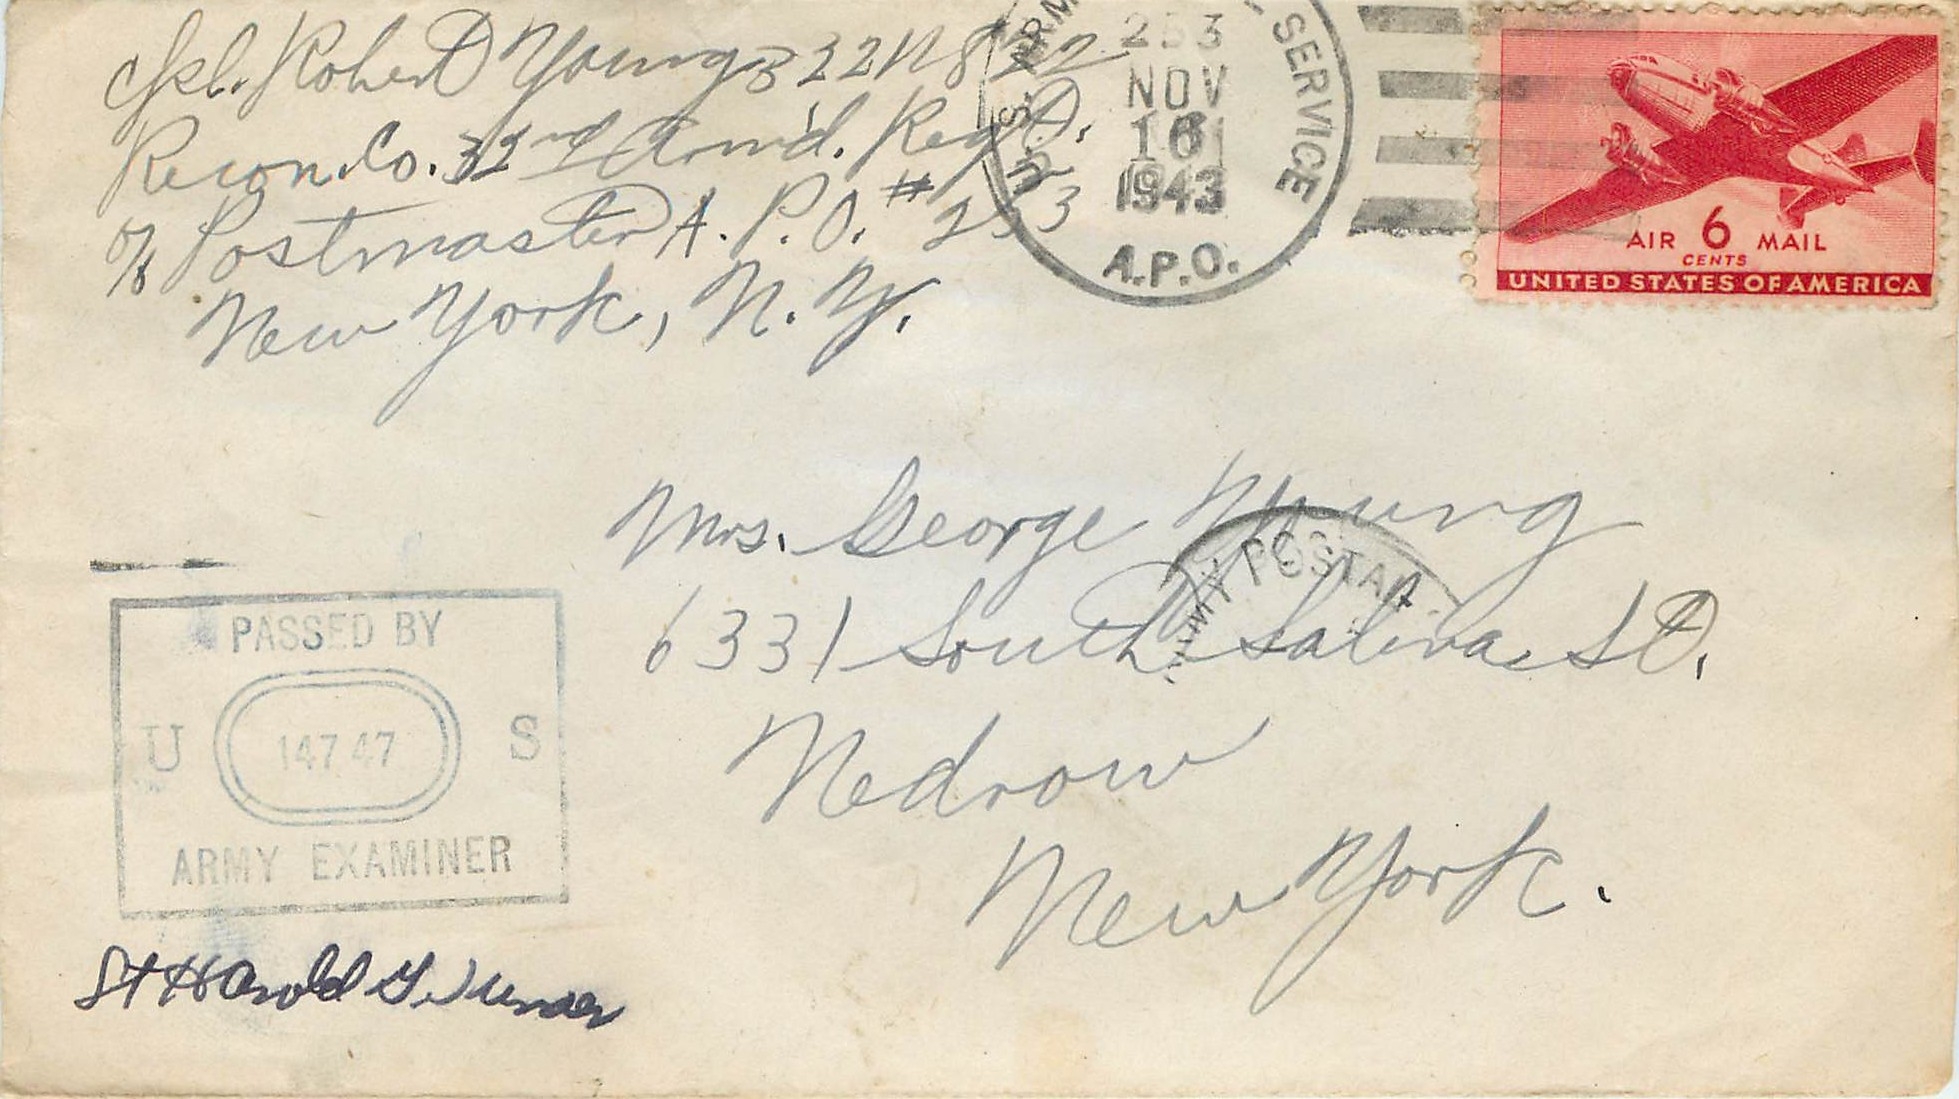 Cpl. Robert Young
Recon. Co. 32nd Arm'd. Regt.
c/o Postmaster A. P. O. # 253
New York, N. Y.
U.S. ARMY SERVICE
253
NOV
1943
A.P.O.
AIR 6 MAIL
CENTS
UNITED STATES OF AMERICA
Mrs. George Young
ARMY POSTAL
6331 South Salina St.
Nedrow
New York.
PASSED BY
U 14747 S
ARMY EXAMINER
Harold G.